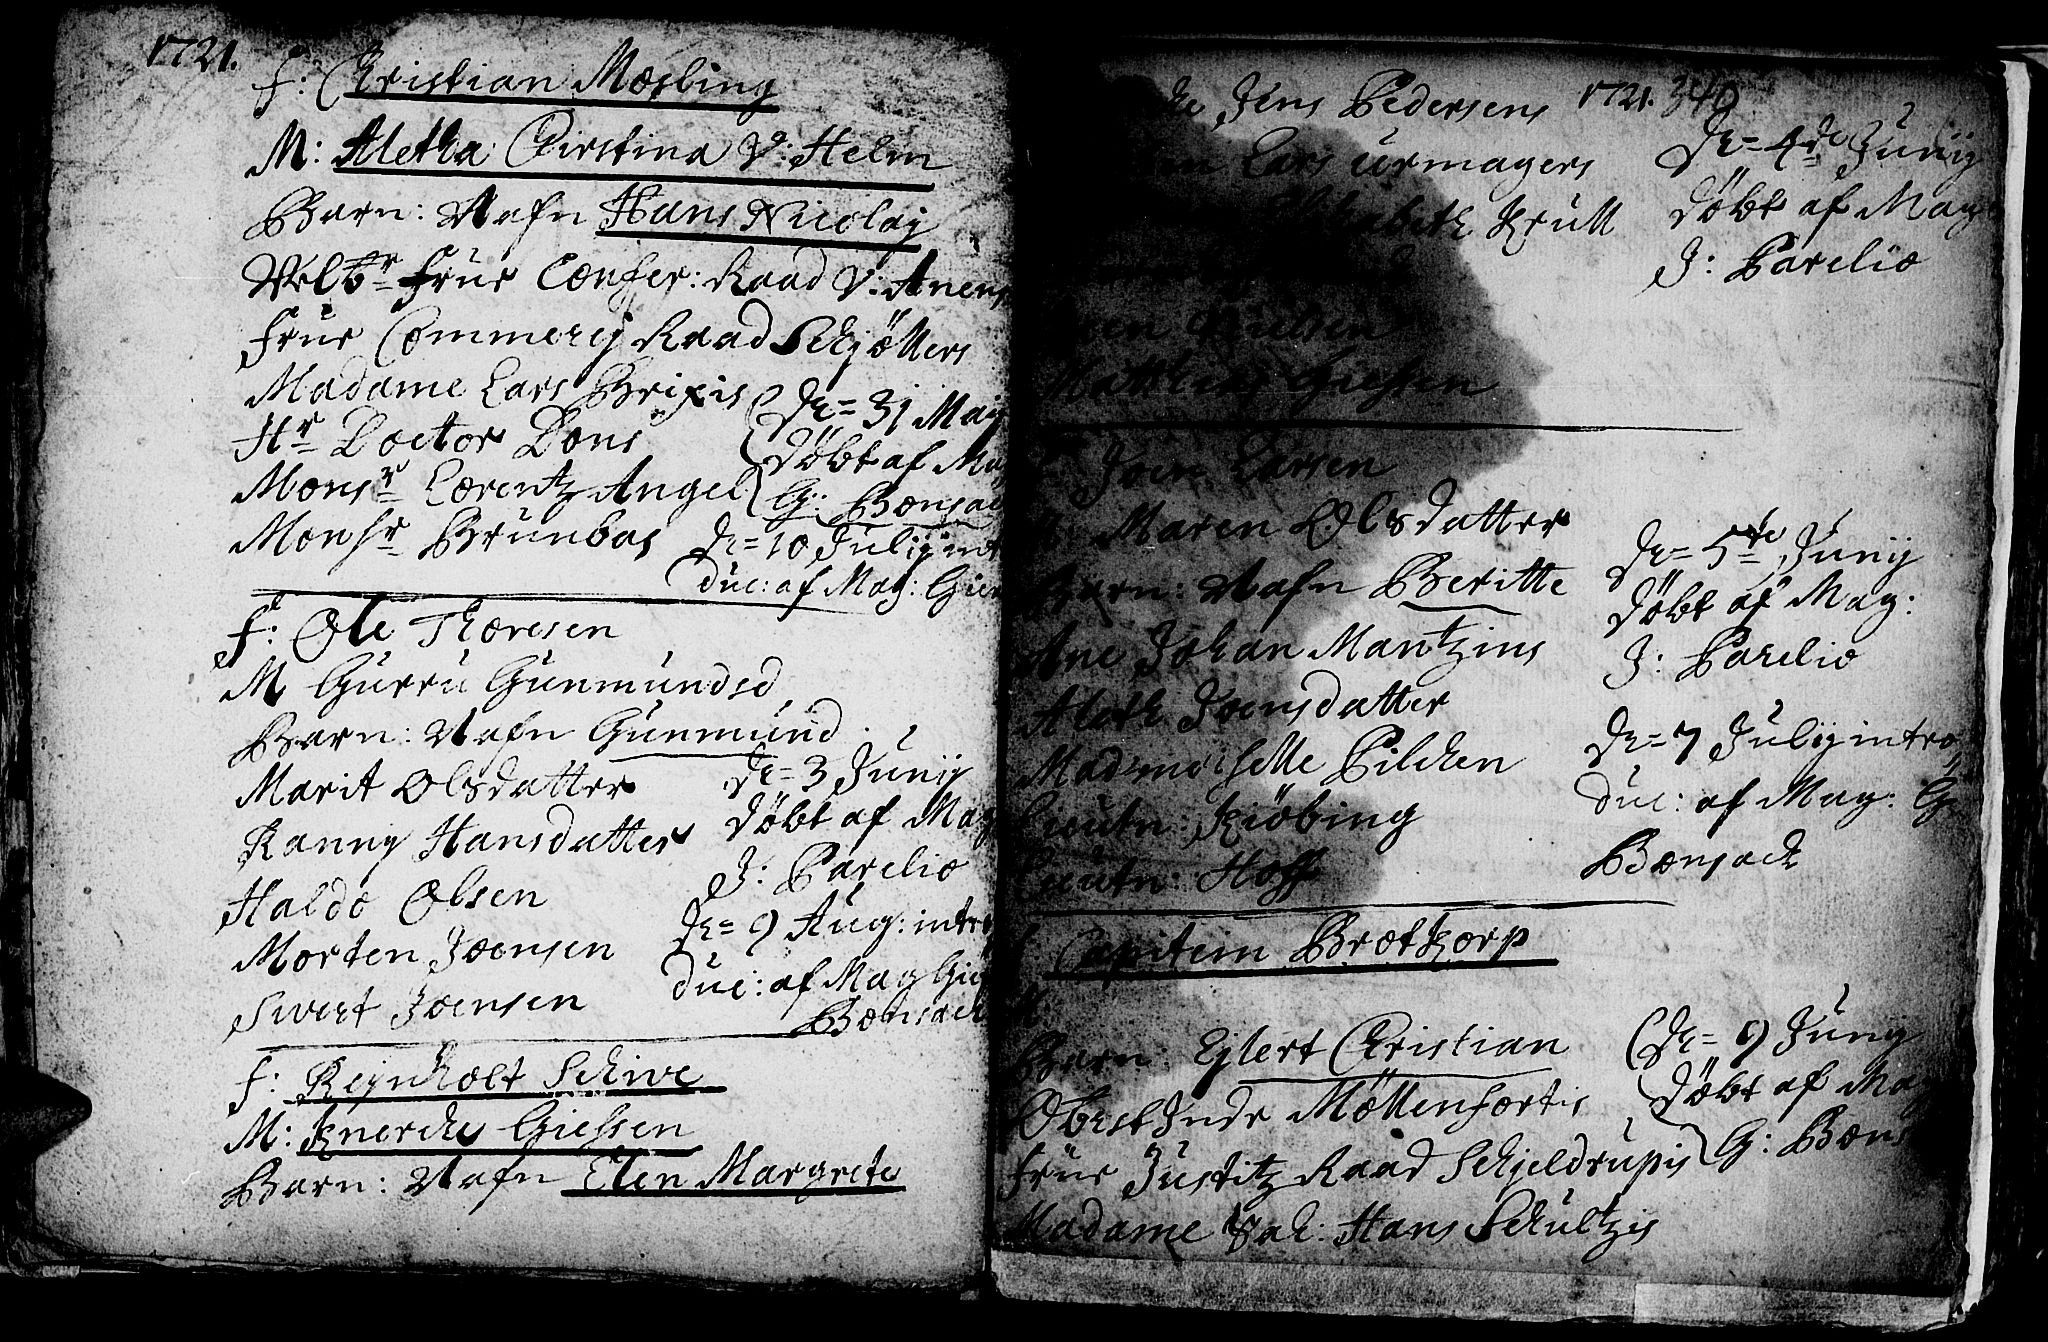 1721.
F: Christian Mæsling
M: Aletha Christina V: Helm
Barn: Nafn Hans Nicolaj
Velbr Frue Confer: Raad V: Anens
Frue Commercj Raad Schjøllers
Madame Lars Brixis
Hr Doctor Dons
Monsr Lorentz Angel
Monsr Brunbas
De= 31 Maij
döbt af Mag
G: Bonsac
De= 10 Julij intr
duc: af Mag: Gier
F: Ole Thoresen
M Gurru Gunmundsd
Barn: Nafn Gunmund
Marit Olsdatter
Ranny Hansdatter
Haldo Olsen
Morten Joensen
Siwert Joensen
De= 3 Junij
döbt af Mag
J: Parelio
De= 9 Aug: intro
duc: af Mag Gier
Bonsach
F: Reynholt Schive
M: Knerche Giessen
Barn: Nafn Elen Margrete
1721. 340
Jens Pedersens
Lars urmagers
Elisabeth Krull
Nielsen
Giessen
De= 4de Junij
döbt af Mag
J: Parelio
Joen Larsen
Maren Olsdatter
Barn: Nafn Beritte
Ane Johan Mantzins
Aleth Joensdatter
Madmoiselle Pilchen
Lieutn: Kiöbing
Lieutn: Hoff
De= 5te Junij
döbt af Mag:
J: Parelio
De= 7 Julij intro
duc: af Mag: G
Bonsach
Capitein Brotkorp
M:
Barn: Ejlert Christian
Oberstinde Möllenfortis
Frue Justitz Raad Schjeldrupis
Madame Sal: Hans Schultzis
De= 9 Junij
döbt af Mag
G: Bons